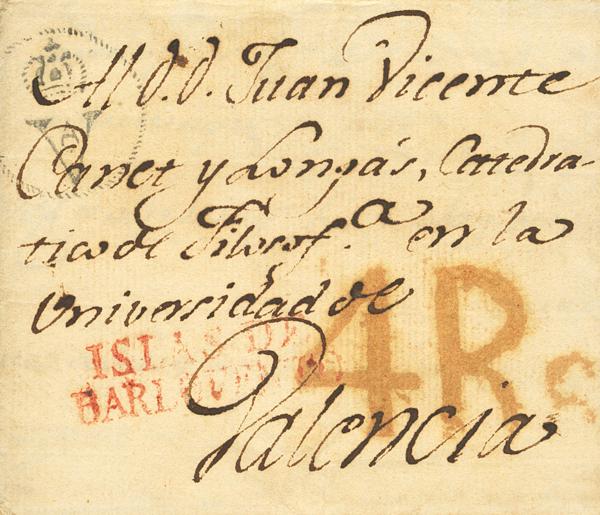 Al d. d. Juan Vicente
Canet y Longás, Catedra-
tico de Filosof.a en la
Universidad de
Valencia
ISLAS DE
BARLOVENTO
4Rs